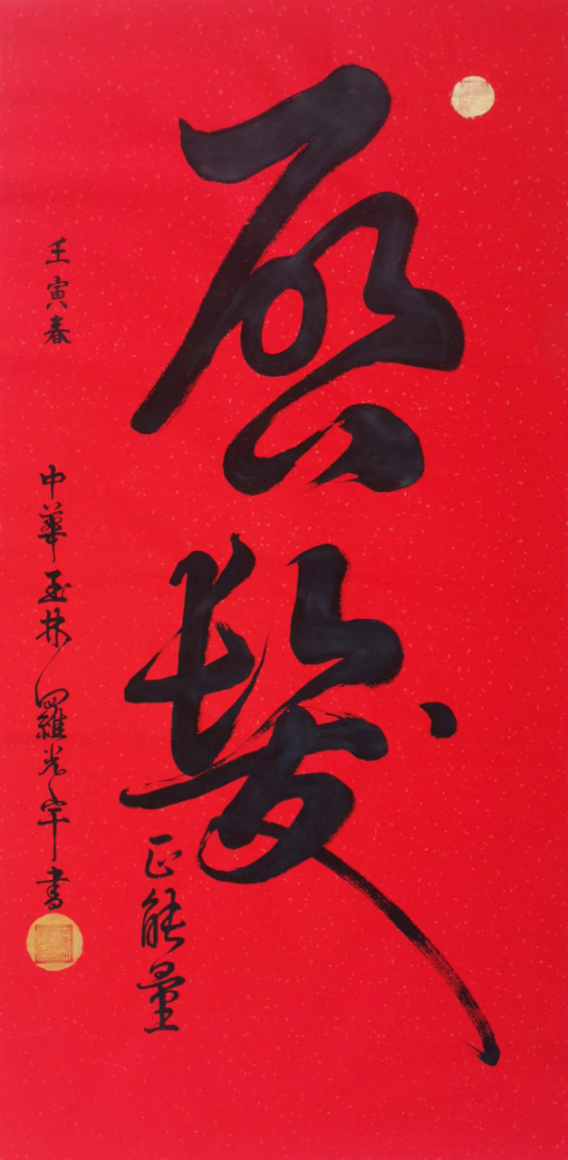 啓髮
正能量
壬寅春
中華玉林羅光宇書